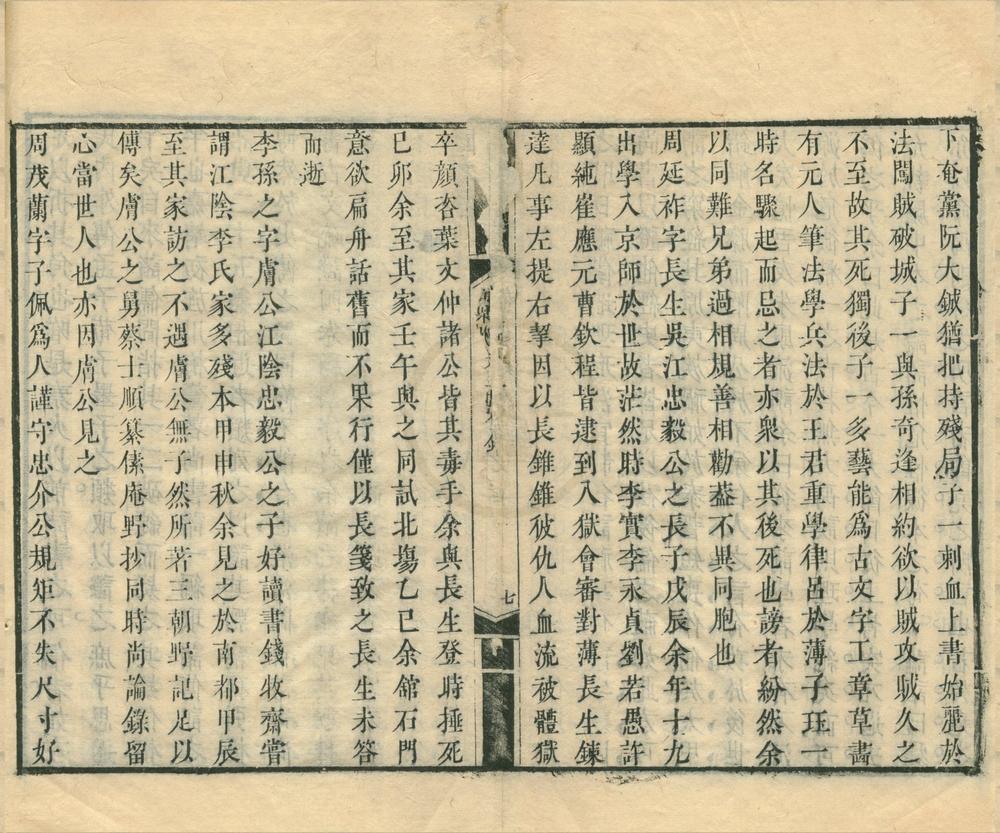 下奄黨阮大鋮猶把持殘局子一刺血上書始麗於
法闖賊破城子一與孫奇逢相約欲以賊攻賊久之
不至故其死獨後子一多藝能爲古文字工章草畵
有元人筆法學兵法於王君重學律呂於薄子珏一
時名驟起而忌之者亦衆以其後死也謗者紛然余
以同難兄弟過相規善相勸葢不異同胞也
周延祚字長生吳江忠毅公之長子戊辰余年十九
出學入京師於世故茫然時李實李永貞劉若愚許
顯純崔應元曹欽程皆逮到入獄會審對薄長生鍊
達凡事左提右挈因以長錐錐彼仇人血流被體獄
七
卒顔咨葉文仲諸公皆其毒手余與長生登時捶死
巳卯余至其家壬午與之同試北塲乙巳余舘石門
意欲扁舟話舊而不果行僅以長箋致之長生未答
而逝
李孫之字膚公江陰忠毅公之子好讀書錢牧齋嘗
謂江陰李氏家多殘本甲申秋余見之於南都甲辰
至其家訪之不遇膚公無子然所著三朝野記足以
傳矣膚公之舅蔡士順纂傃庵野抄同時尚論錄留
心當世人也亦因膚公見之
周茂蘭字子佩爲人謹守忠介公規矩不失尺寸好